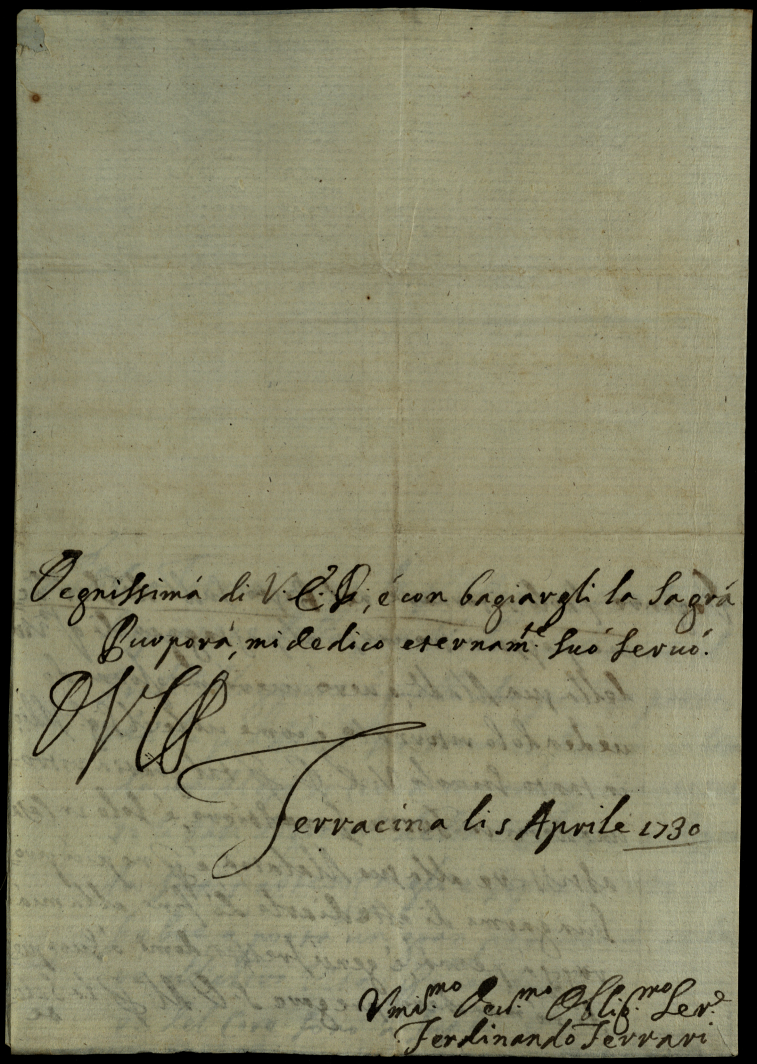 Degnissimá di V. E. R., é con bagiargli la Sagrá
Purporá, mi dedico eternam.te Suó Seruó.
DVER
Terracina li 5 Aprile 1730
Vmil.mo Deu.mo Oblig.mo Ser.e
Ferdinando Ferrari